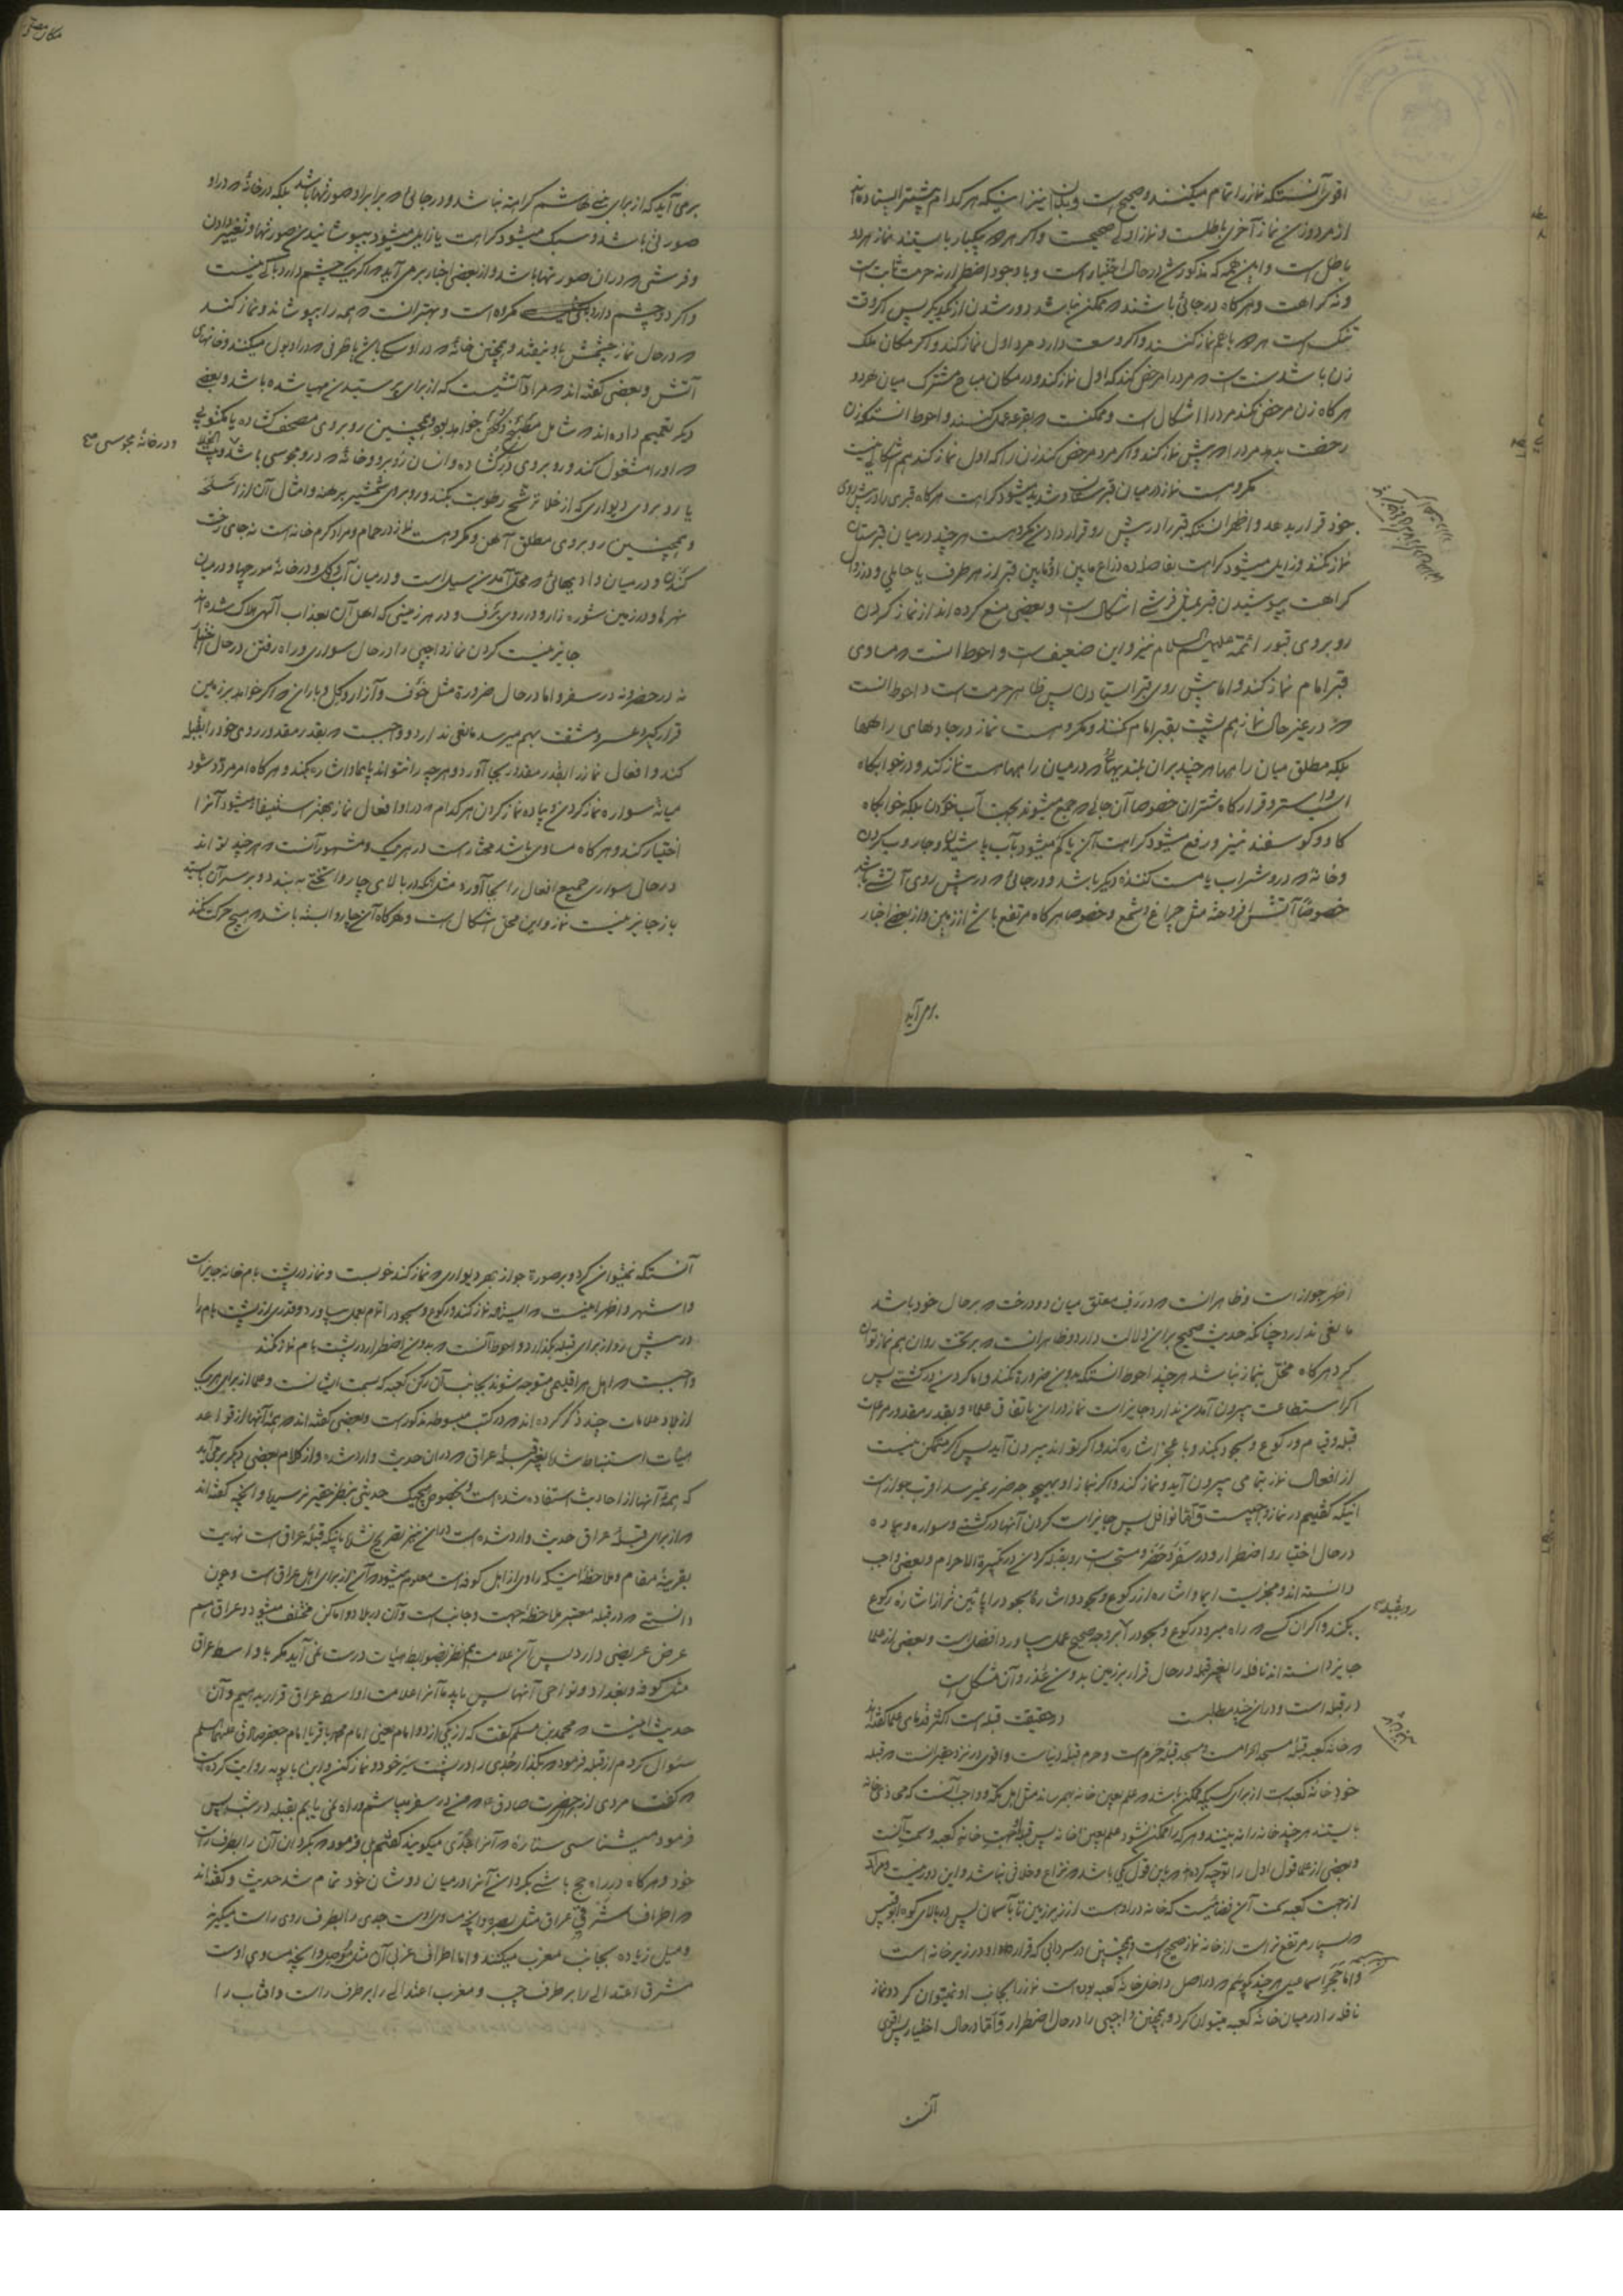 اقوی آنستکه نماز را تمام میکنند و صحیح است و بدان نیز اینکه هر کدام پیشتر ایستاده اند
از مرد و زن نماز آخری باطلست و نماز اولی صحیحست و اگر هر دو بیکبار بایستند نماز هر دو
باطل است و این همه که مذکور شد در حال اختیار است و با وجود اضطرار نه حرمت ثابت است
و نه کراهت و هر گاه در جائی باشند که ممکن نباشد دور شدن از یکدیگر پس اگر وقت
تنک است هر دو با هم نماز کنند و اگر وسعت دارد مرد اول نماز کند و اگر مکان ملک
زن باشد سنت است که مرد را مرخص کند که اول نماز کند و در مکان مباح مشترک میان هر دو
هر گاه زن مرخص نکند مرد را اشکال است و ممکنست که بقرعه عمل کنند و احوط انستکه زن
رخصت بدهد مرد را که پیش نماز کند و اگر مرد مرخص کند زن را که اول نماز کند هم اشکالی نیست
مکروهست نماز در میان قبرستان و شدید میشود کراهت هر گاه قبری را در پیش روی
خود قرار بدهد و اظهر انستکه قبر را در پیش رو قرار دادن مکروهست هر چند در میان قبرستان
نماز نکند و زایل میشود کراهت بفاصله ده ذراع مابین او و مابین قبر از هر طرف یا حایلی و در زوال
کراهت بپوشیدن قبر بمثل فرشی اشکال است و بعضی منع کرده اند از نماز کردن
روبروی قبور ائمه علیهم السلام نیز و این ضعیف است و احوط انست که مساوی
قبر امام نماز نکند و اما پیش روی قبر ایستادن پس ظاهر حرمت است و احوط انست
که در غیر حال نماز هم پشت بقبر امام نکنند و مکروهست نماز در جادهای راهها
بلکه مطلق میان راهها هر چند بران بلندیهائی که در میان راهها است نماز کند و در خوابگاه
اسب و استر و قرارگاه شتران خصوصا آن جائی که جمع میشوند بجهت آب خوردن بلکه خوابگاه
گاو و گوسفند نیز و رفع میشود کراهت آن یا کم میشود بآب پاشیدن و جاروب کردن
و خانه که درو شراب یا مست کننده دیگر باشد و در جائی که در پیش روی آتشی باشد
خصوصا آتش افروخته مثل چراغ و شمع و خصوصا هر گاه مرتفع باشد از زمین و از بعضی اخبار
برمی آید
برمی آید که از برای بنی هاشم کراهت نباشد و در جائی که برابر او صورتها باشد بلکه در خانه که در او
صورتی باشد و سبک میشود کراهت یا زایل میشود بپوشانیدن صورتها و تغییر دادن
و فرشی که دران صورتها باشد و از بعضی اخبار برمی آید که اگر یک چشم دارد باکی نیست
و اگر دو چشم دارد مکروه است و بهتر انست که همه را بپوشاند و نماز کند
که در حال نماز چشمش باو نیفتد و همچنین خانه که در او سگ باشد یا ظرفی که در او بول میکنند و خانهای
آتش و بعضی گفته اند که مراد آتشیست که از برای پرستیدن مهیا شده باشد و بعضی
دیگر تعمیم داده اند که شامل مطبخ و گلخن خواهد بود و همچنین روبروی مصحف گشاده یا مکتوبی
که او را مشغول کند و روبروی در گشاده و انسان روبرو و خانه که درو مجوسی باشد
و در خانه مجوسی صح
یا روبروی دیواری که از خلا ترشح رطوبت بکند و روبروی شمشیر برهنه و امثال آن از اسلحه
و همچنین روبروی مطلق آهن و مکروهست نماز در حمام و مراد گرم خانه است نه جای رخت
کندن و در میان وادیهائی که محل آمدن سیل است و در میان آب و گل و در خانه مورچها و در میان
نهرها و در زمین شوره زار و در روی برف و در هر زمینی که اهل آن بعذاب الهی هلاک شده اند
جایز نیست کردن نماز واجبی را در حال سواری و راه رفتن در حال اختیار
نه در حضر و نه در سفر و اما در حال ضرورة مثل خوف و آزار و گل و باران که اگر خواهد بر زمین
قرار گیرد عسر و مشقت بهم میرسد مانعی ندارد و واجبست که بقدر مقدور روی خود را بقبله
کند و افعال نماز را بقدر مقدور بجا آورد و هر چه را نتواند بایما و اشاره بکند و هر گاه امر مردد شود
میانه سواره نماز کردن و پیاده نماز کردن هر کدام که در او افعال نماز بهتر استیفاء میشود آنرا
اختیار کند و هر گاه مساوی باشد مختار است در هر یک و مشهور آنست که هر چند تواند
در حال سواری جمیع افعال را بجا آورد مثل انکه در بالای چاروا تختی به بندد و بر سر آن بایستد
باز جایز نیست نماز و این محل اشکال است و هر گاه آن چاروا بسته باشد که هیچ حرکت نکند
اظهر جواز است و ظاهر انست که در رف معلق میان دو درخت که بر حال خود باشد
مانعی ندارد چنانکه حدیث صحیح بر این دلالت دارد و ظاهر انست که بر تخت روان هم نماز توان
کرد هر گاه مخل بنماز نباشد هر چند احوط انستکه بدون ضرورة نکند و اما کردن در کشتی پس
اگر استطاعت بیرون آمدن ندارد جایز است نماز دران باتفاق علماء و بقدر مقدور مراعات
قبله و قیام و رکوع و سجود بکند و با عجز اشاره کند و اگر تواند بیرون آید پس اگر متمکن نیست
از افعال نماز بتمامی بیرون آید و نماز کند و اگر نماز او بهیچوجه ضرر نمیرسد اقرب جواز است
اینکه گفتیم در نماز واجبیست و اما نوافل پس جایز است کردن آنها در کشتی و سواره و پیاده
در حال اختیار و اضطرار و در سفر و حضر و مستحب است رو بقبله کردن در تکبیرة الاحرام و بعضی واجب
دانسته اند و مجزیست ایما و اشاره از رکوع و سجود و اشاره سجود را پائین تر از اشاره رکوع
رو بقبله صح
بکند و اگر ان کسی که راه میرود رکوع و سجود را بر وجه صحیح عمل بیاورد افضل است و بعضی از علما
جایز دانسته اند نافله را بغیر قبله در حال قرار بر زمین بدون عذر و آن مشکل است
در قبله است و دران چند مطلبست در حقیقت قبله است اکثر قدمای علما گفته اند
که خانه کعبه قبله مسجد الحرامست و مسجد قبله حرم است و حرم قبله دنیاست و اقوی در نزد حقیر انست که قبله
خود خانه کعبه است از برای کسیکه ممکن باشد که علم بعین خانه بهم رساند مثل اهل مکه و واجب آنست که محاذی خانه
بایستند هر چند خانه را نه بینند و هر که را ممکن نشود علم بعین خانه پس قبله جهت خانه کعبه و سمت آنست
و بعضی از علما قول اول را توجیه کرده اند که باین قول یکی باشد که نزاع و خلافی نباشد و این دور نیست و مراد
از جهت کعبه سمت آن فضائیست که خانه در اوست از زیر زمین تا بآسمان پس در بالای کوه ابو قبیس
که بسیار مرتفع تر است از خانه نماز صحیح است و همچنین در سردابی که قرار او در زیر خانه است
و اما حجر اسماعیل هر چند گوئیم که در اصل داخل خانه کعبه بوده است نماز را بجانب او نمیتوان کرد و نماز
نافله را در میان خانه کعبه میتوان کرد و همچنین واجبی را در حال اضطرار و اما در حال اختیار پس اقوی
آنست
آنستکه نمیتوان کرد و بر صورة جواز بهر دیواری که نماز کند خوبست و نماز در پشت بام خانه جایز است
و اشهر و اظهر اینست که ایستاده نماز کند و رکوع و سجود را تمام بعمل بیاورد و قدری از پشت بام را
در پیش رو از برای قبله بگذارد و احوط آنست که بدون اضطرار در پشت بام نماز نکند
واجبست که اهل هر اقلیمی متوجه شوند بجانب آن رکن کعبه که سمت ایشانست و علما از برای هر یک
از بلاد علامات چند ذکر کرده اند که در کتب مبسوطه مذکور است و بعضی گفته اند که همه آنها از قواعد
هیأت استنباط شده بغیر قبله عراق که دران حدیث وارد شده و از کلام بعضی دیگر برمی آید
که همه آنها از احادیث استفاده شده است و بخصوص هیچیک حدیثی بنظر حقیر نرسید و انچه گفته اند
که از برای قبله عراق حدیث وارد شده است دران نیز تصریح نشده باینکه قبله عراق است نهایت
بقرینه مقام و ملاحظه اینکه راوی از اهل کوفه است معلوم میشود که آن از برای اهل عراق است و چون
دانستی که در قبله معتبر ملاحظه جهت و جانب است و آن در بلاد و اماکن مختلف میشود و عراق هم
عرض عریضی دارد پس آن علامت هم نظر بضوابط هیأت درست نمی آید مگر با اواسط عراق
مثل کوفه و بغداد و نواحی آنها پس باید ما آنرا علامت اواسط عراق قرار بدهیم و آن
حدیث اینست که محمد بن مسلم گفت که از یکی از دو امام یعنی امام محمد باقر یا امام جعفر صادق علیهما السلم
سئوال کردم از قبله فرمود که بگذار جدی را در پشت سر خود و نماز کن و ابن بابویه روایت کرده است
که گفت مردی از حضرت صادق ع که من در سفر میباشم و راه نمی یابم بقبله در شب پس
فرمود میشناسی ستاره که آنرا جدی میگویند گفتم بلی فرمود که بگردان آن را بطرف راست
خود و هر گاه در راه حج باشی بگردان آنرا در میان دو شانه خود تمام شد حدیث و گفته اند
که اطراف شرقی عراق مثل بصره و انچه مساوی اوست جدی را بطرف روی راست میگیرند
و میل زیاده بجانب مغرب میکنند و اما اطراف غربی آن مثل موصل و انچه مساوی اوست
مشرق اعتدالی را بر طرف چپ و مغرب اعتدالی را بر طرف راست و افتاب را